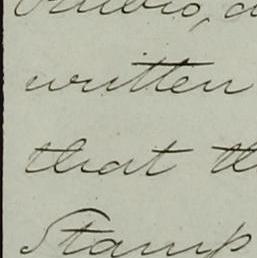 written
that th
Stamp